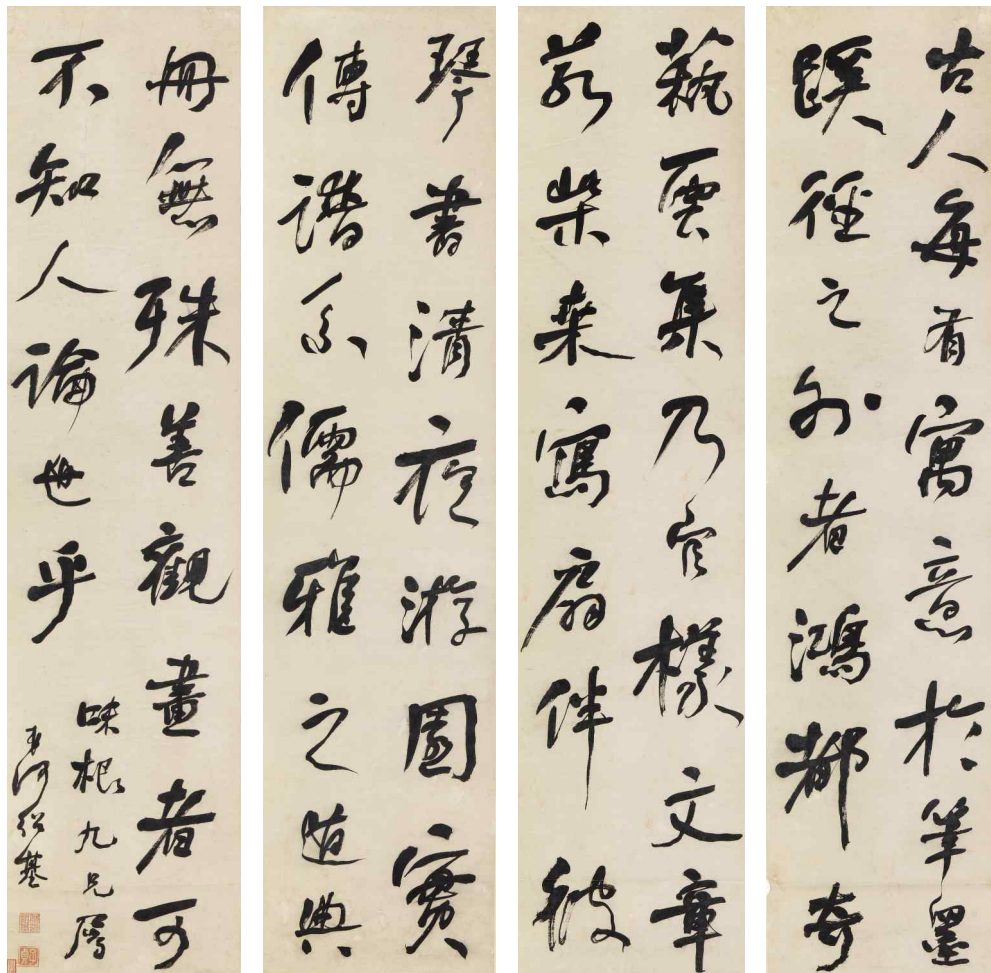 古人每有寓意於筆墨
蹊徑之外者鴻都奇
蓺雲集乃官樣文章
若柴桑寫扇伴彼
琴書清夜游園實
傳譜系儒雅之道典
冊無殊善觀畫者可
不知人論世乎
味根九兄屬
弟何紹基